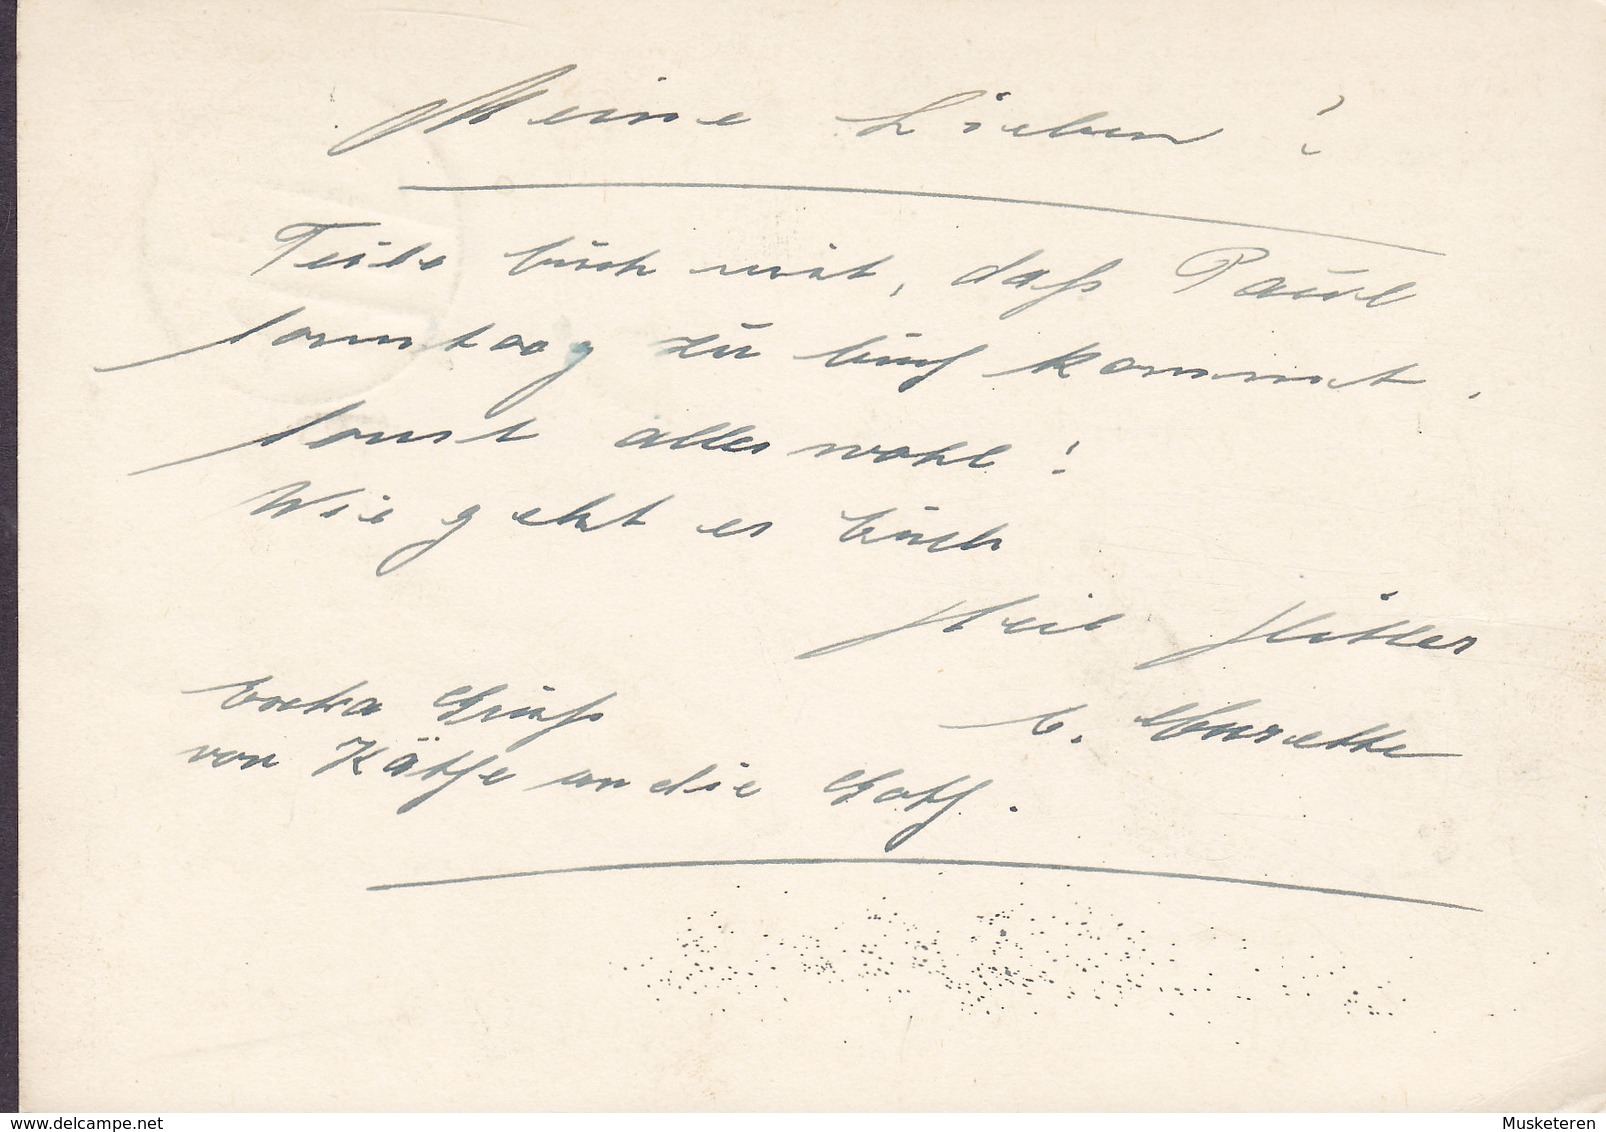 Meine Lieben!
Teile Euch mit, daß Paul
Sonntag zu Euch kommt.
Sonst alles wohl!
Wie geht es Euch
Heil Hitler
Extra Gruß
von Käthe an die
delcampe.net
Musketeren